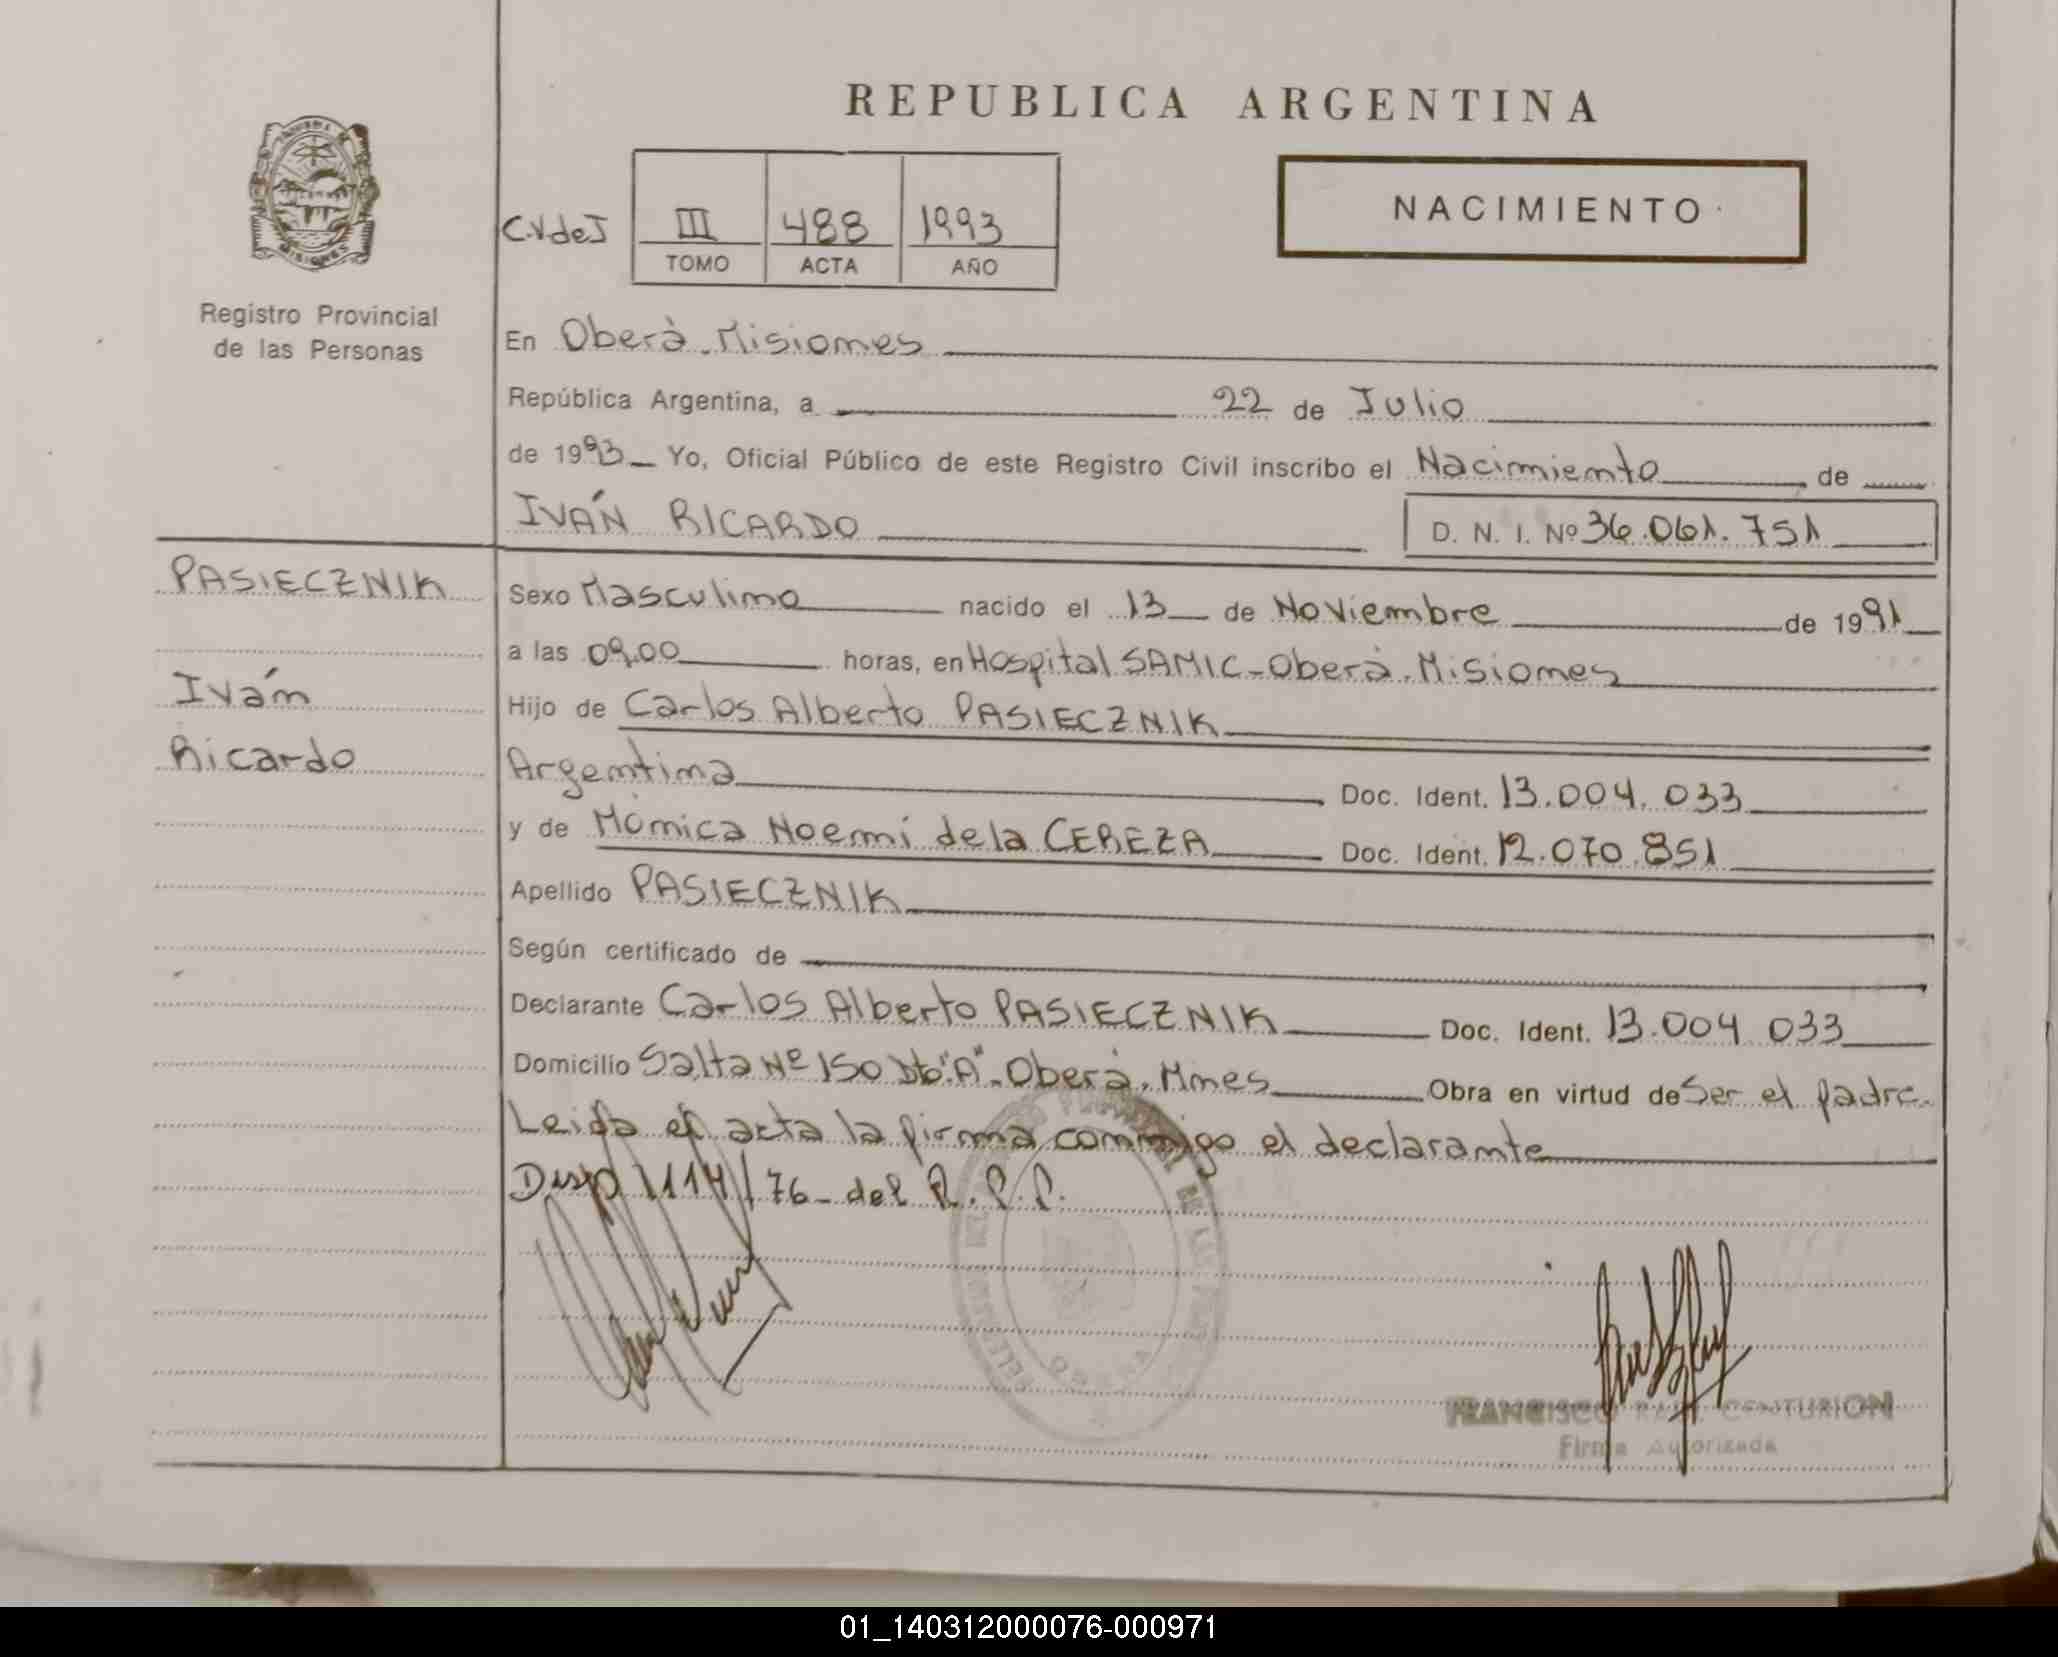 REPUBLICA ARGENTINA
NACIMIENTO
C.VdeJ III 488 1993
TOMO ACTA AÑO
Registro Provincial
de las Personas
MISIONES
En Oberà. Misiones
República Argentina, a 22 de Julio
de 1993 Yo, Oficial Público de este Registro Civil inscribo el Nacimiento, de
IVÁN RICARDO D. N. I. Nº 36.061.751
PASIECZNIK
Iván
Ricardo
Sexo Masculino nacido el 13 de Noviembre de 1991
a las 09.00 horas, en Hospital SAMIC-Oberà. Misiones
Hijo de Carlos Alberto PASIECZNIK
Argentina Doc. Ident. 13.004.033
y de Mònica Noemí de la CEREZA Doc. Ident. 12.070.851
Apellido PASIECZNIK
Según certificado de
Declarante Carlos Alberto PASIECZNIK Doc. Ident. 13.004 033
Domicilio Salta Nº 150 Dto "A". Oberà. Mnes Obra en virtud de Ser el padre.
Leida el acta la firma conmigo el declarante
Disp 1114/76- del R.P.P.
OBERA
FRANCISCO RAUL CENTURION
Firma Autorizada
01_140312000076-000971